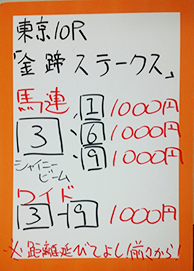 東京10R
「金蹄ステークス」
馬連 1 1000円
3 6 1000円
シャイニービーム 9 1000円
ワイド
3-9 1000円
※距離延びてよし!前々から!